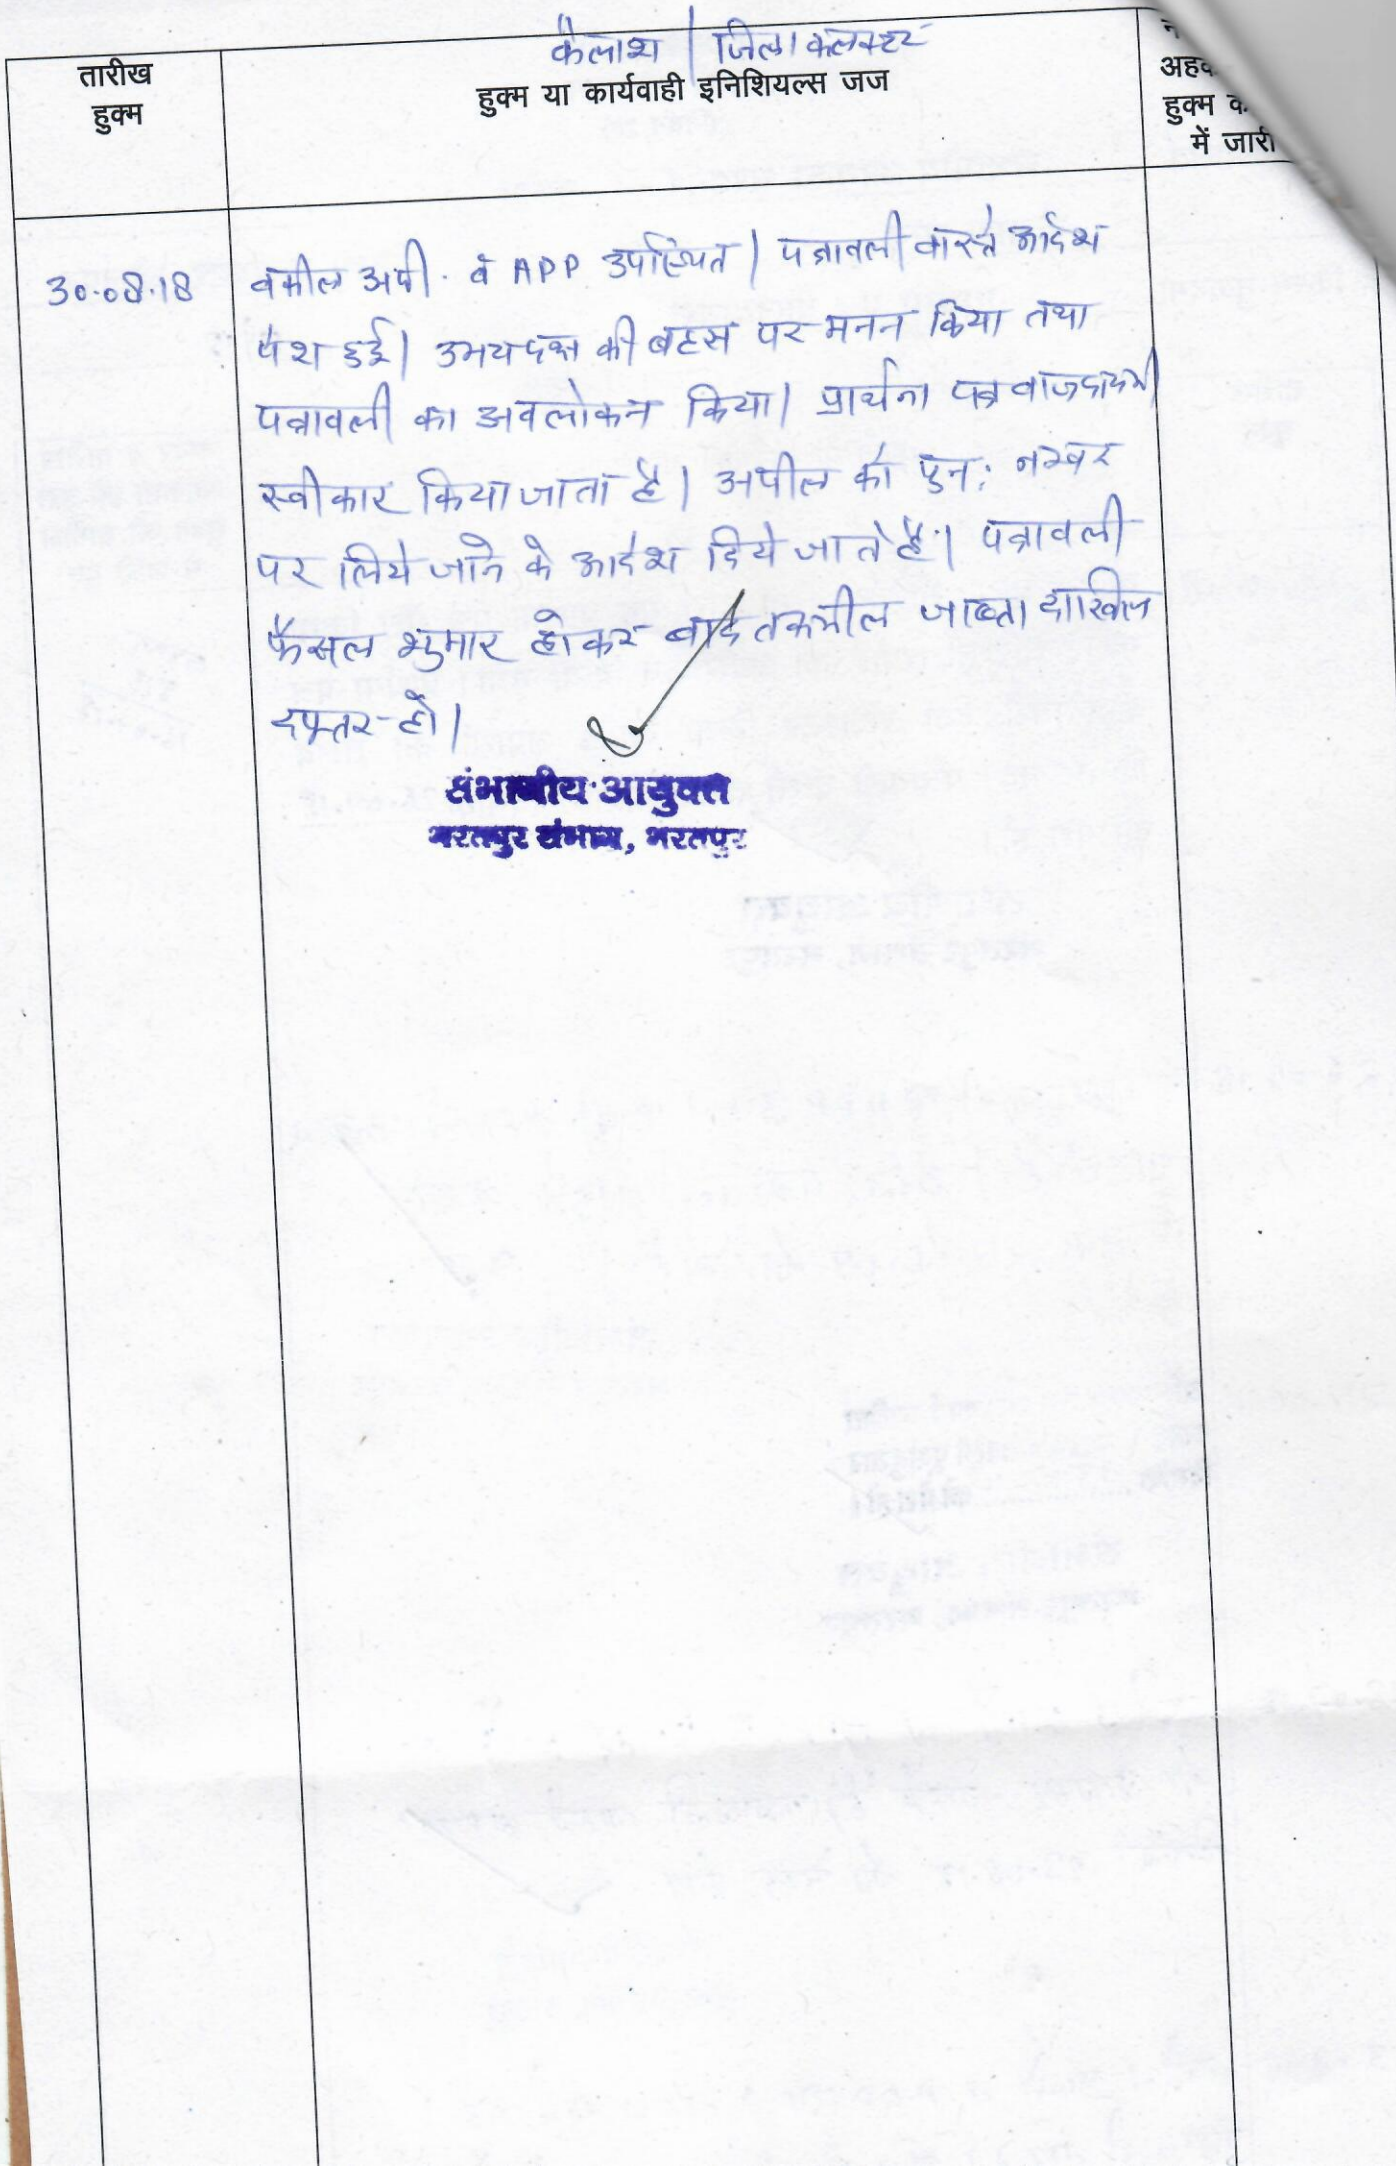 कैलाश / जिला कलक्टर
तारीख
हुक्म
हुक्म या कार्यवाही इनिशियल्स जज
हुक्म
में जारी
30.08.18
वकील अपी. व APP उपस्थित। पत्रावली वास्ते आदेश
पेश हुई। उभयपक्ष की बहस पर मनन किया तथा
पत्रावली का अवलोकन किया। प्रार्थना पत्र बाजदायमी
स्वीकार किया जाता है। अपील को पुनः नम्बर
पर लिये जाने के आदेश दिये जाते है। पत्रावली
फैसल शुमार होकर बाद तकमील जाब्ता दाखिल
दफ्तर हो।
संभागीय आयुक्त
भरतपुर संभाग, भरतपुर